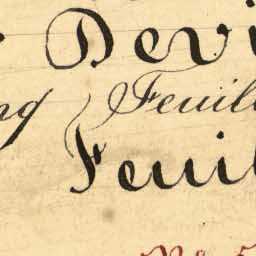 Devi
ng Feuill
Feuil
No 5